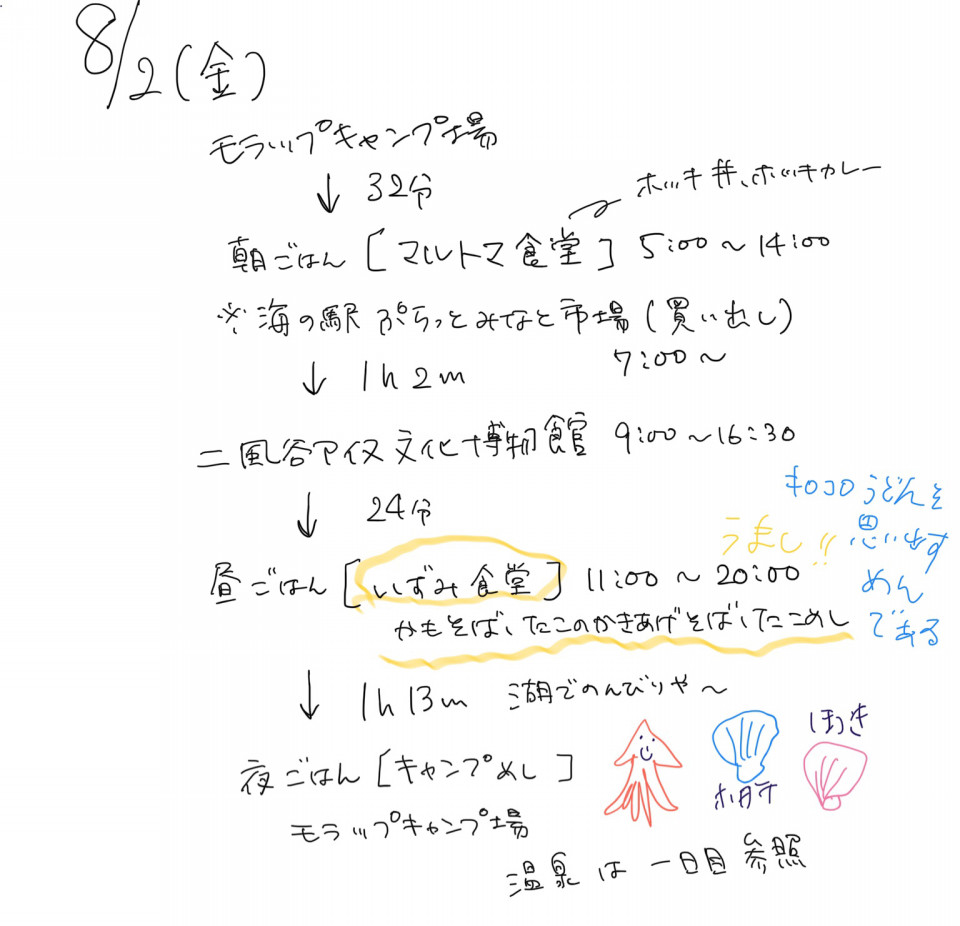 8/2(金)
モラップキャンプ場
↓ 32分
ホッキ丼、ホッキカレー
朝ごはん [マルトマ食堂] 5:00～14:00
※海の駅 ぷらっとみなと市場(買い出し)
7:00～
↓ 1h2m
二風谷アイヌ文化博物館 9:00～16:30
↓ 24分
昼ごはん [いずみ食堂] 11:00～20:00
うまし!!
キロコロうどんを
思い出す
めん
である
かもそば、たこのかきあげそば、たこめし
↓ 1h13m 湖でのんびりや～
夜ごはん [キャンプめし]
ホタテ
ほっき
モラップキャンプ場
温泉は一日目参照